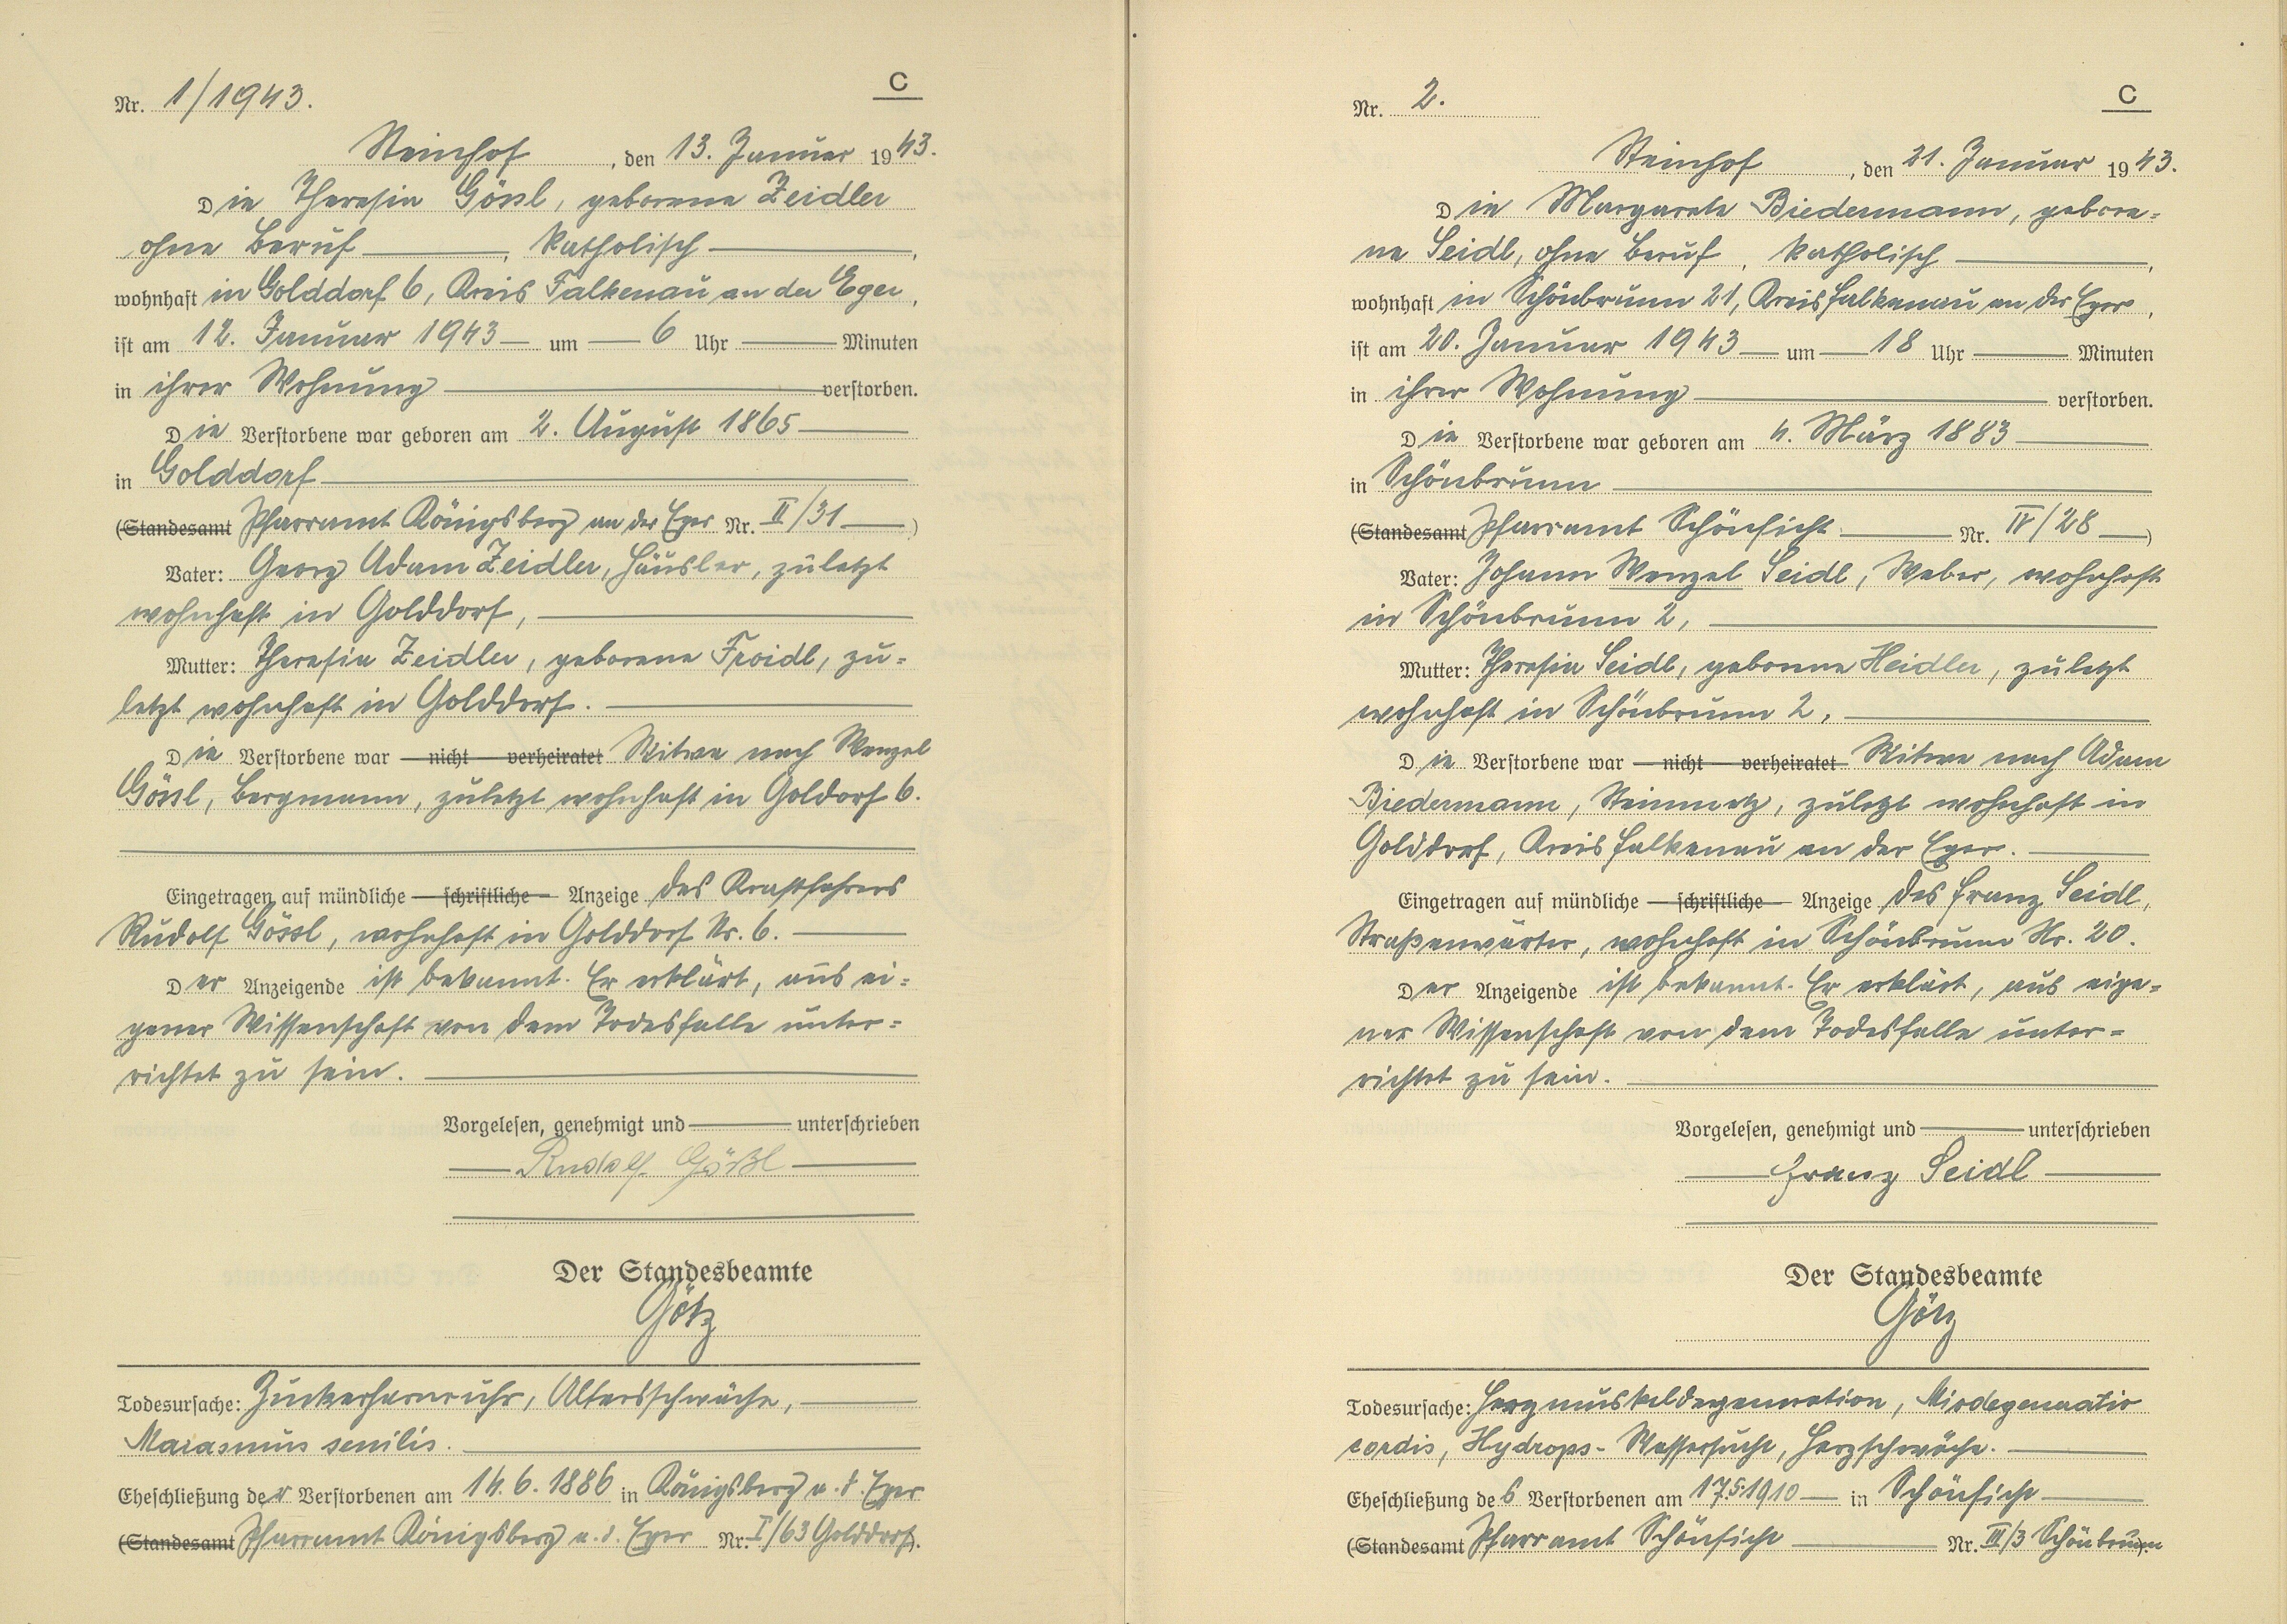 Nr. 1/1943.
C
Steinhof, den 13. Januar 1943.
Die Theresia Gössl, geborene Zeidler
ohne Beruf, katholisch,
wohnhaft in Golddorf 6, Kreis Falkenau an der Eger,
ist am 12. Januar 1943 um 6 Uhr Minuten
in ihrer Wohnung verstorben.
Die Verstorbene war geboren am 2. August 1865
in Golddorf
(Standesamt Pfarramt Königsberg an der Eger Nr. II/31)
Vater: Georg Adam Zeidler, Häusler, zuletzt
wohnhaft in Golddorf,
Mutter: Theresia Zeidler, geborene Froidl, zu=
letzt wohnhaft in Golddorf.
Die Verstorbene war nicht verheiratet Witwe nach Wenzel
Gössl, Bergmann, zuletzt wohnhaft in Goldorf 6.
Eingetragen auf mündliche schriftliche Anzeige des Kraftfahrers
Rudolf Gössl, wohnhaft in Golddorf Nr. 6.
Der Anzeigende ist bekannt. Er erklärt, aus ei=
gener Wissenschaft von dem Todesfalle unter=
richtet zu sein.
Vorgelesen, genehmigt und unterschrieben
Rudolf Gößl
Der Standesbeamte
Götz
Todesursache: Zuckerharnruhr, Altersschwäche,
Marasmus senilis.
Eheschließung der Verstorbenen am 14.6.1886 in Königsberg a.d. Eger
(Standesamt Pfarramt Königsberg a.d. Eger Nr. I/63 Golddorf).
Nr. 2.
C
Steinhof, den 21. Januar 1943.
Die Margarete Biedermann, gebore=
ne Seidl, ohne Beruf, katholisch,
wohnhaft in Schönbrunn 21, Kreis Falkenau an der Eger,
ist am 20. Januar 1943 um 18 Uhr Minuten
in ihrer Wohnung verstorben.
Die Verstorbene war geboren am 4. März 1883
in Schönbrunn
(Standesamt Pfarramt Schönficht Nr. IV/28)
Vater: Johann Wenzel Seidl, Weber, wohnhaft
in Schönbrunn 2,
Mutter: Theresia Seidl, geborene Heidler, zuletzt
wohnhaft in Schönbrunn 2.
Die Verstorbene war nicht verheiratet Witwe nach Adam
Biedermann, Steinmetz, zuletzt wohnhaft in
Golddorf, Kreis Falkenau an der Eger.
Eingetragen auf mündliche schriftliche Anzeige des Franz Seidl,
Straßenwärter, wohnhaft in Schönbrunn Nr. 20.
Der Anzeigende ist bekannt. Er erklärt, aus eige=
ner Wissenschaft von dem Todesfalle unter=
richtet zu sein.
Vorgelesen, genehmigt und unterschrieben
Franz Seidl
Der Standesbeamte
Götz
Todesursache: Herzmuskeldegeneration, Miodegeneratio
cordis, Hydrops- Wassersucht, Herzschwäche.
Eheschließung des Verstorbenen am 17.5.1910 in Schönficht
(Standesamt Pfarramt Schönficht Nr. III/3 Schönbrunn).